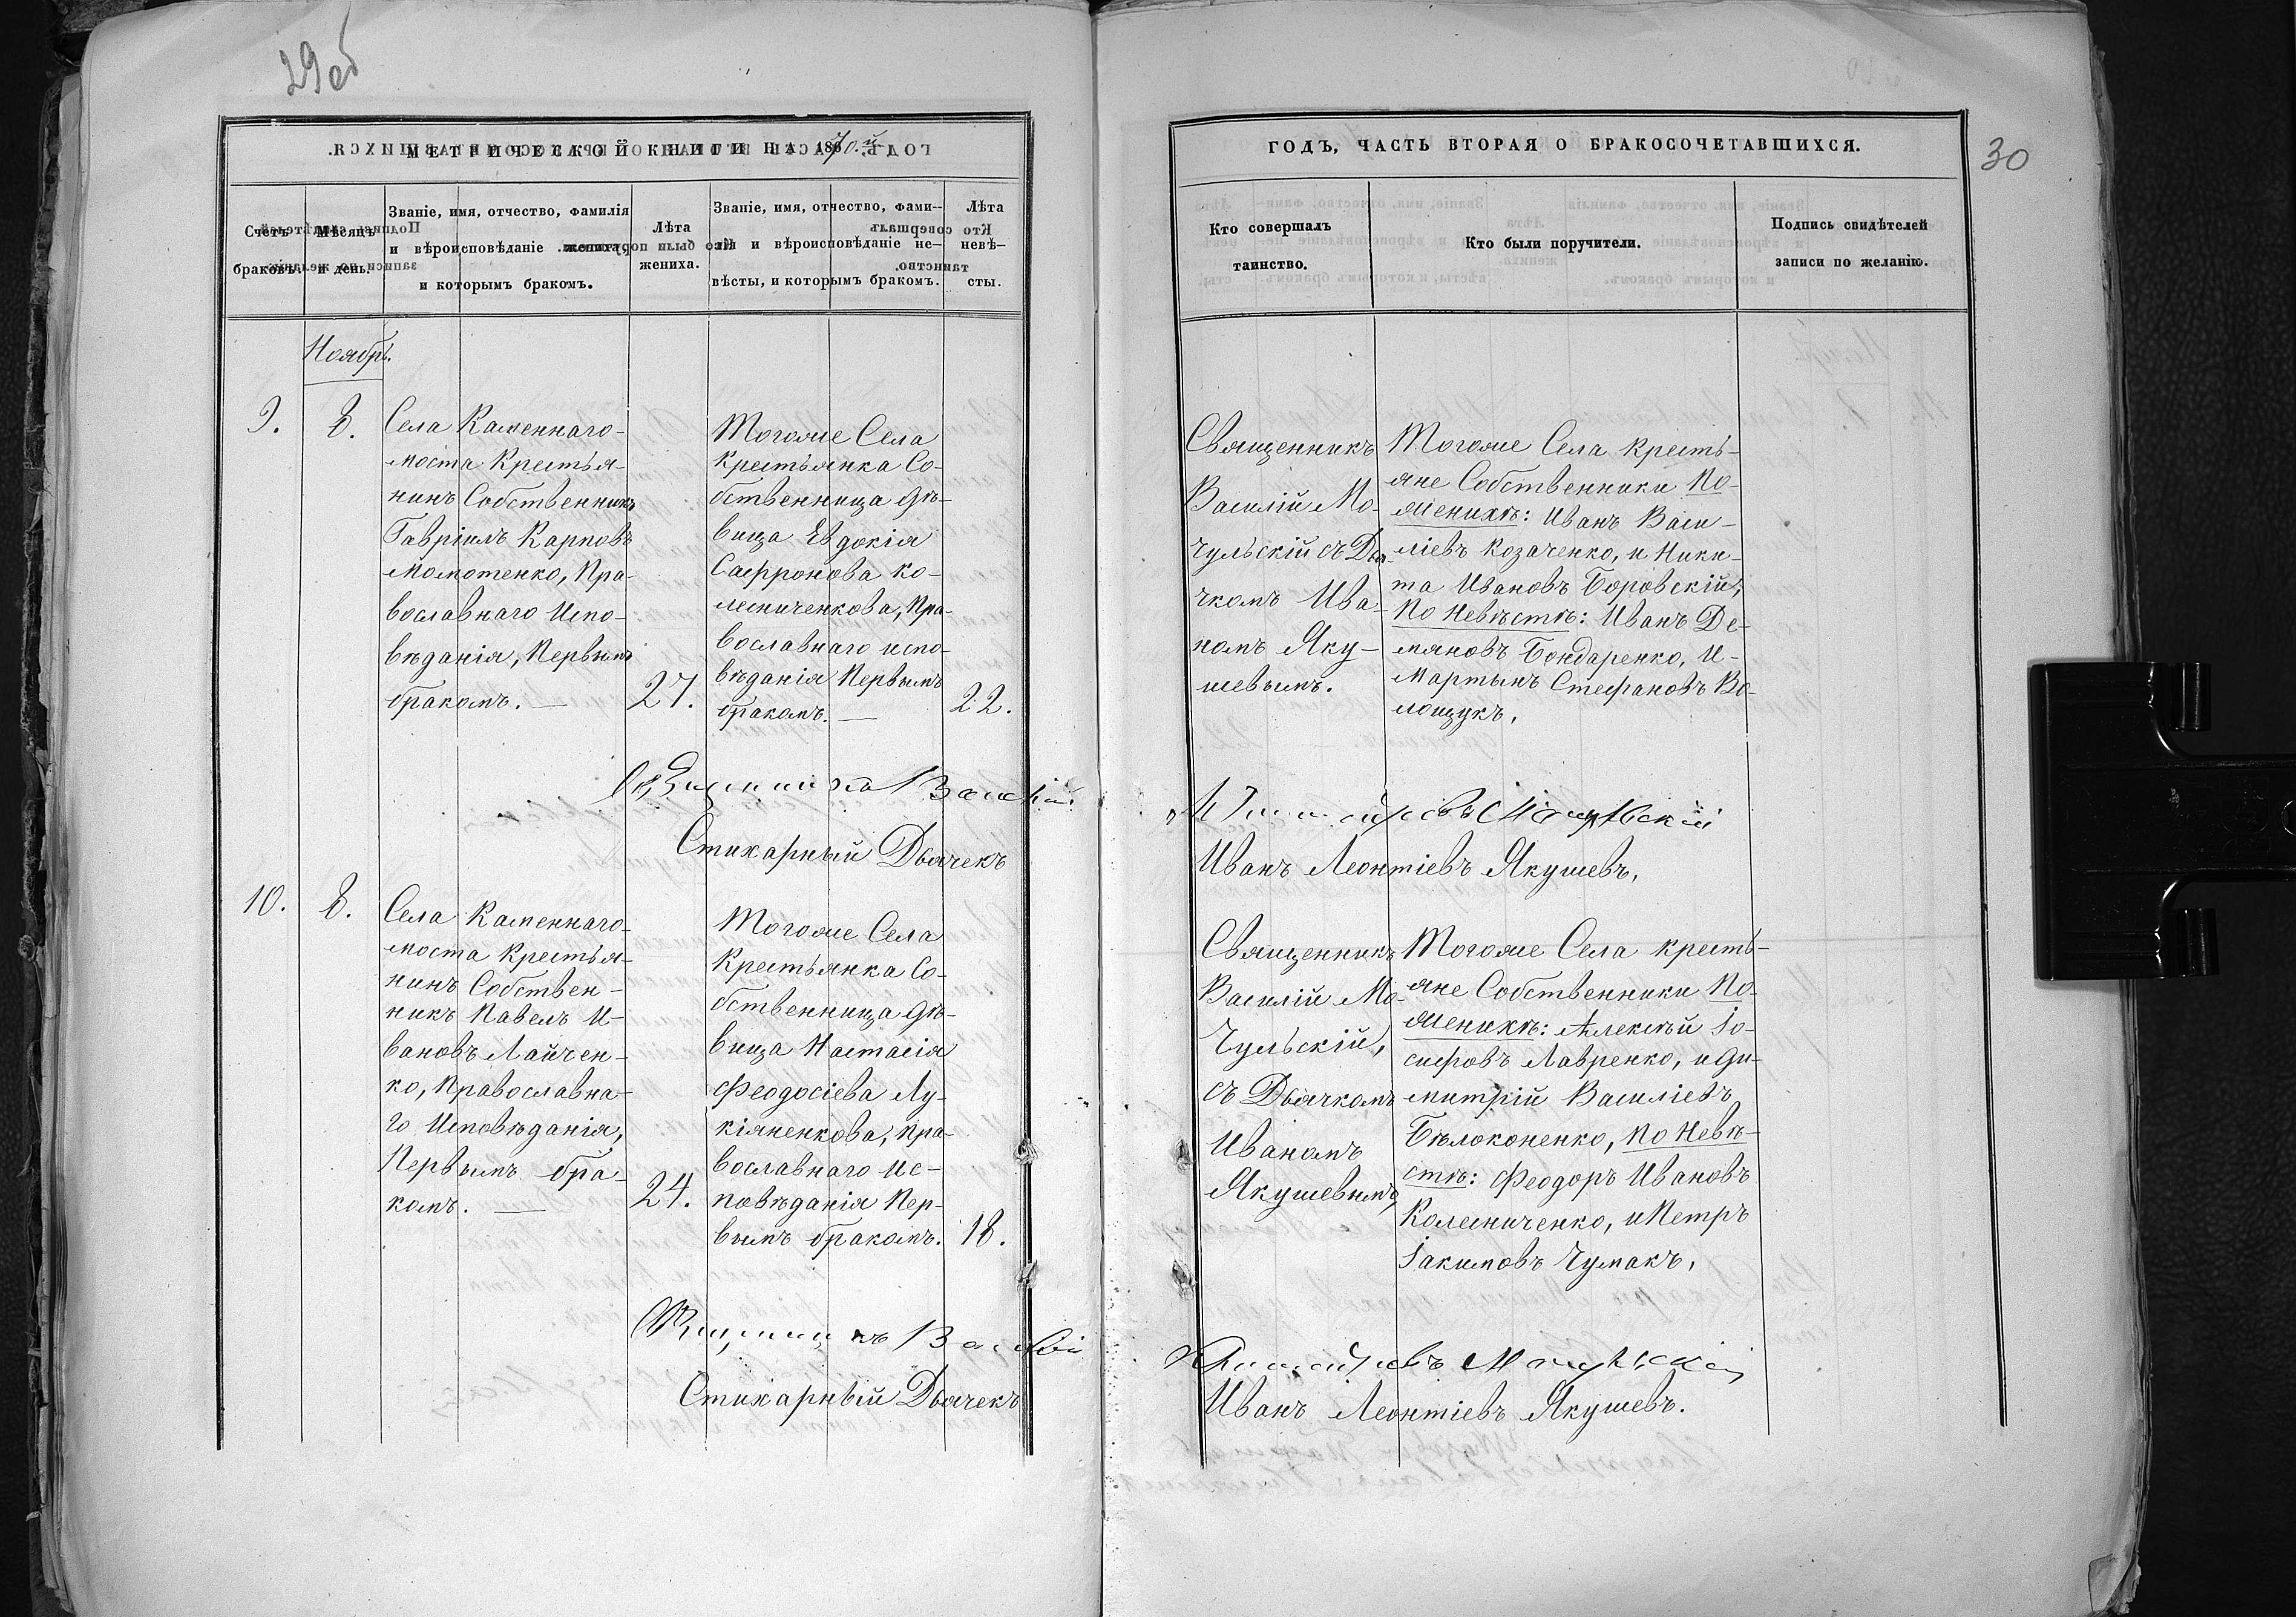 29об
МЕТРИЧЕСКОЙ КНИГИ НА 1870.й
Счетъ браковъ.
Мѣсяцъ и день.
Званіе, имя, отчество, фамилія
и вѣроисповѣданіе жениха,
и которымъ бракомъ.
Лѣта
жениха.
Званіе, имя, отчество, фами-
лія и вѣроисповѣданіе не-
вѣсты, и которымъ бракомъ.
Лѣта
невѣ-
сты.
Ноябрь.
9.
8.
Села Каменнаго-
моста Крестья-
нинъ Собственникъ
Гавріилъ Карповъ
Момотенко, Пра-
вославнаго Испо-
вѣданія, Первымъ
бракомъ.
27.
Тогоже Села
Крестьянка Со-
бственница Дѣ-
вица Евдокія
Сафронова Ко-
лесниченкова, Пра-
вославнаго испо-
вѣданія Первымъ
бракомъ.
22.
Священникъ Василій
Стихарный Дьячекъ
10.
8.
Села Каменнаго-
моста Крестья-
нинъ Собствен-
никъ Павелъ И-
вановъ Лайчен-
ко, Православна-
го Исповѣданія,
Первымъ бра-
комъ.
24.
Тогоже Села
Крестьянка Со-
бственница Дѣ-
вица Настасія
Феодосіева Лу-
кіяненкова, Пра-
вославнаго Ис-
повѣданія Пер-
вымъ бракомъ.
18.
Священникъ Василій
Стихарный Дьячекъ
30
ГОДЪ, ЧАСТЬ ВТОРАЯ О БРАКОСОЧЕТАВШИХСЯ.
Кто совершалъ
таинство.
Кто были поручители.
Подпись свидѣтелей
записи по желанію.
Священникъ
Василій Мо-
чульскій съ Дья-
чкомъ Ива-
номъ Яку-
шевымъ.
Тогоже Села кресть-
яне Собственники По
женихѣ: Иванъ Васи-
ліевъ Козаченко, и Ники-
та Ивановъ Боровскій;
По Невѣстѣ: Иванъ Де-
мяновъ Бондаренко, И-
Мартынъ Стефановъ Во-
лощукъ,
Мочульскій
Иванъ Леонтіевъ Якушевъ,
Священникъ
Василій Мо-
чульскій,
съ Дьячкомъ
Иваномъ
Якушевымъ,
Тогоже Села кресть-
яне Собственники По-
женихѣ: Алексѣй Іо-
сифовъ Лавренко, и Ди-
митрій Василіевъ
Бѣлоконенко, По Невѣ-
стѣ: Феодоръ Ивановъ
Колесниченко, и Петръ
Іакимовъ Чумакъ,
Мочульскій
Иванъ Леонтіевъ Якушевъ.